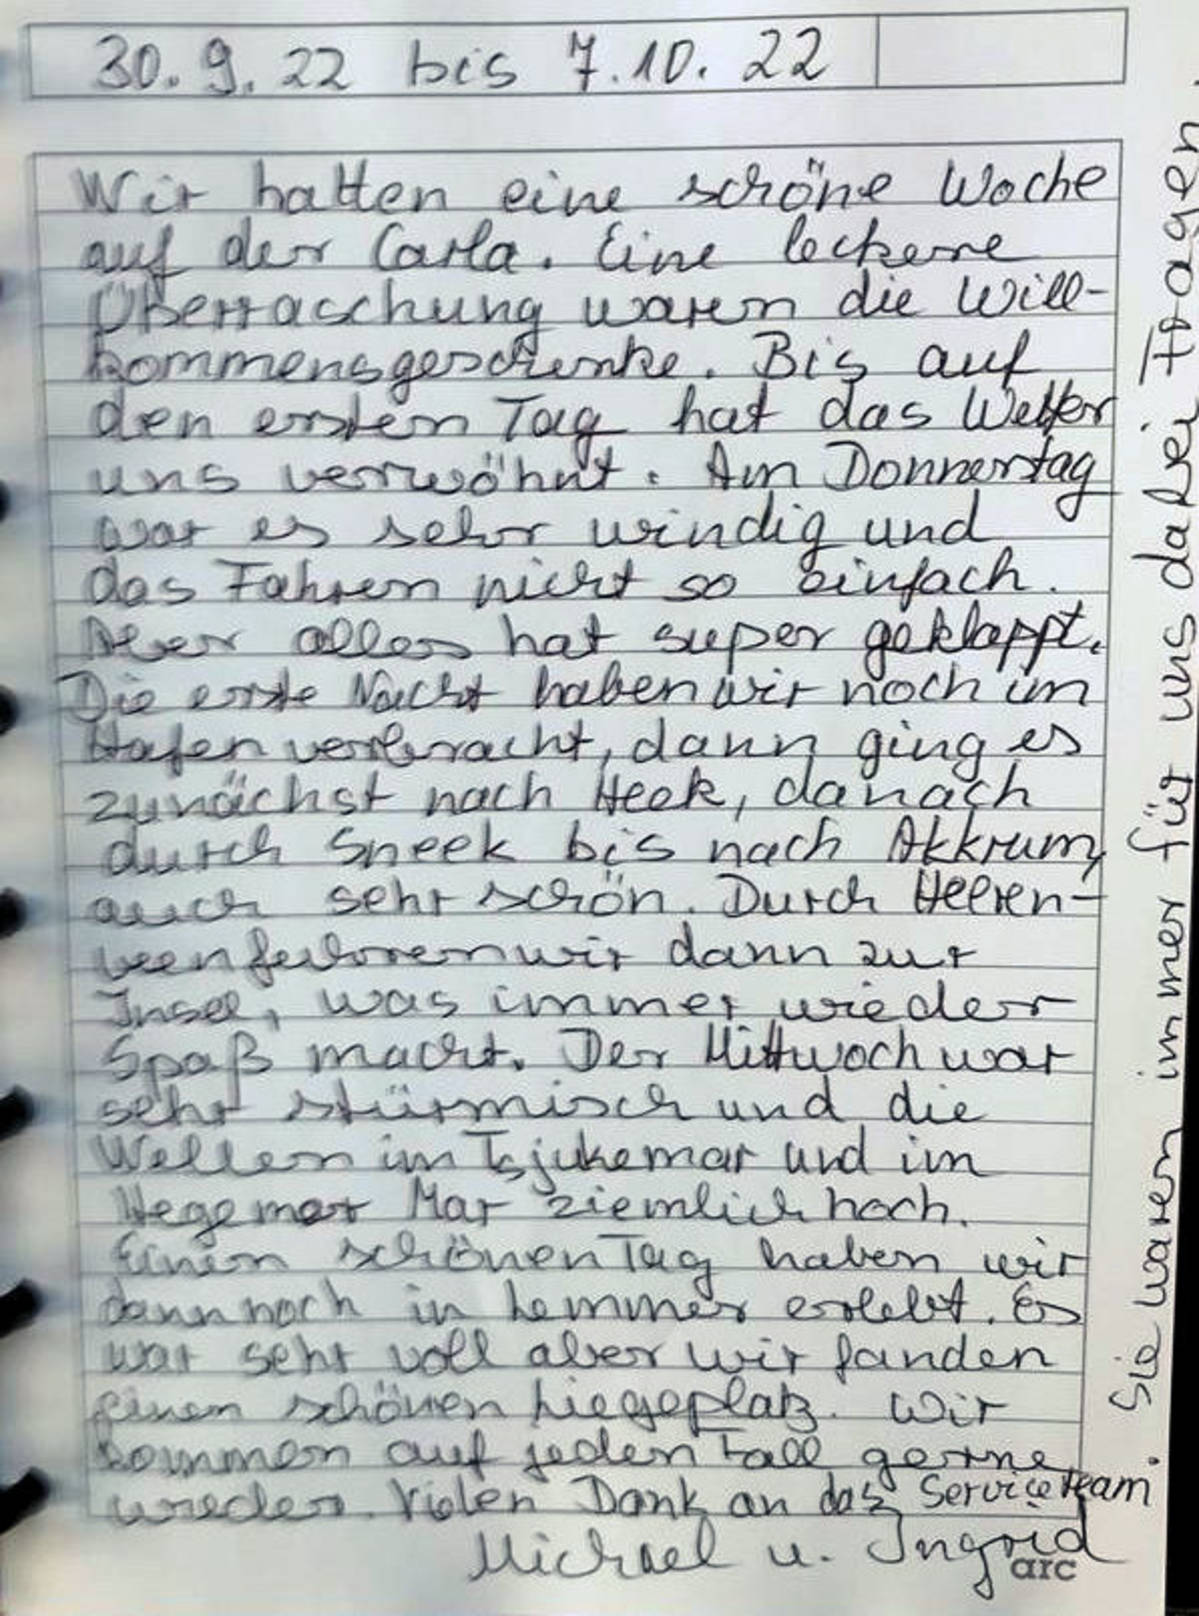 30.9.22 bis 7.10.22
Wir hatten eine schöne Woche
auf der Carla. Eine leckere
Überraschung waren die Will-
kommensgeschenke. Bis auf
den ersten Tag hat das Wetter
uns verwöhnt. Am Donnerstag
war es sehr windig und
das Fahren nicht so einfach.
Aber alles hat super geklappt.
Die erste Nacht haben wir noch im
Hafen verbracht, dann ging es
zunächst nach Heek, danach
durch Sneek bis nach Akkrum,
auch sehr schön. Durch Heeren-
veen fuhren wir dann zur
Insel, was immer wieder
Spaß macht. Der Mittwoch war
sehr stürmisch und die
Wellen im Tsjukemar und im
Hegemer Mar ziemlich hoch.
Einen schönen Tag haben wir
dann noch in Lemmer erlebt. Es
war sehr voll aber wir fanden
einen schönen Liegeplatz. Wir
kommen auf jeden Fall gerne
wieder. Vielen Dank an das Serviceteam.
Sie waren immer für uns da bei Fragen.
Michael u. Ingrid
arc